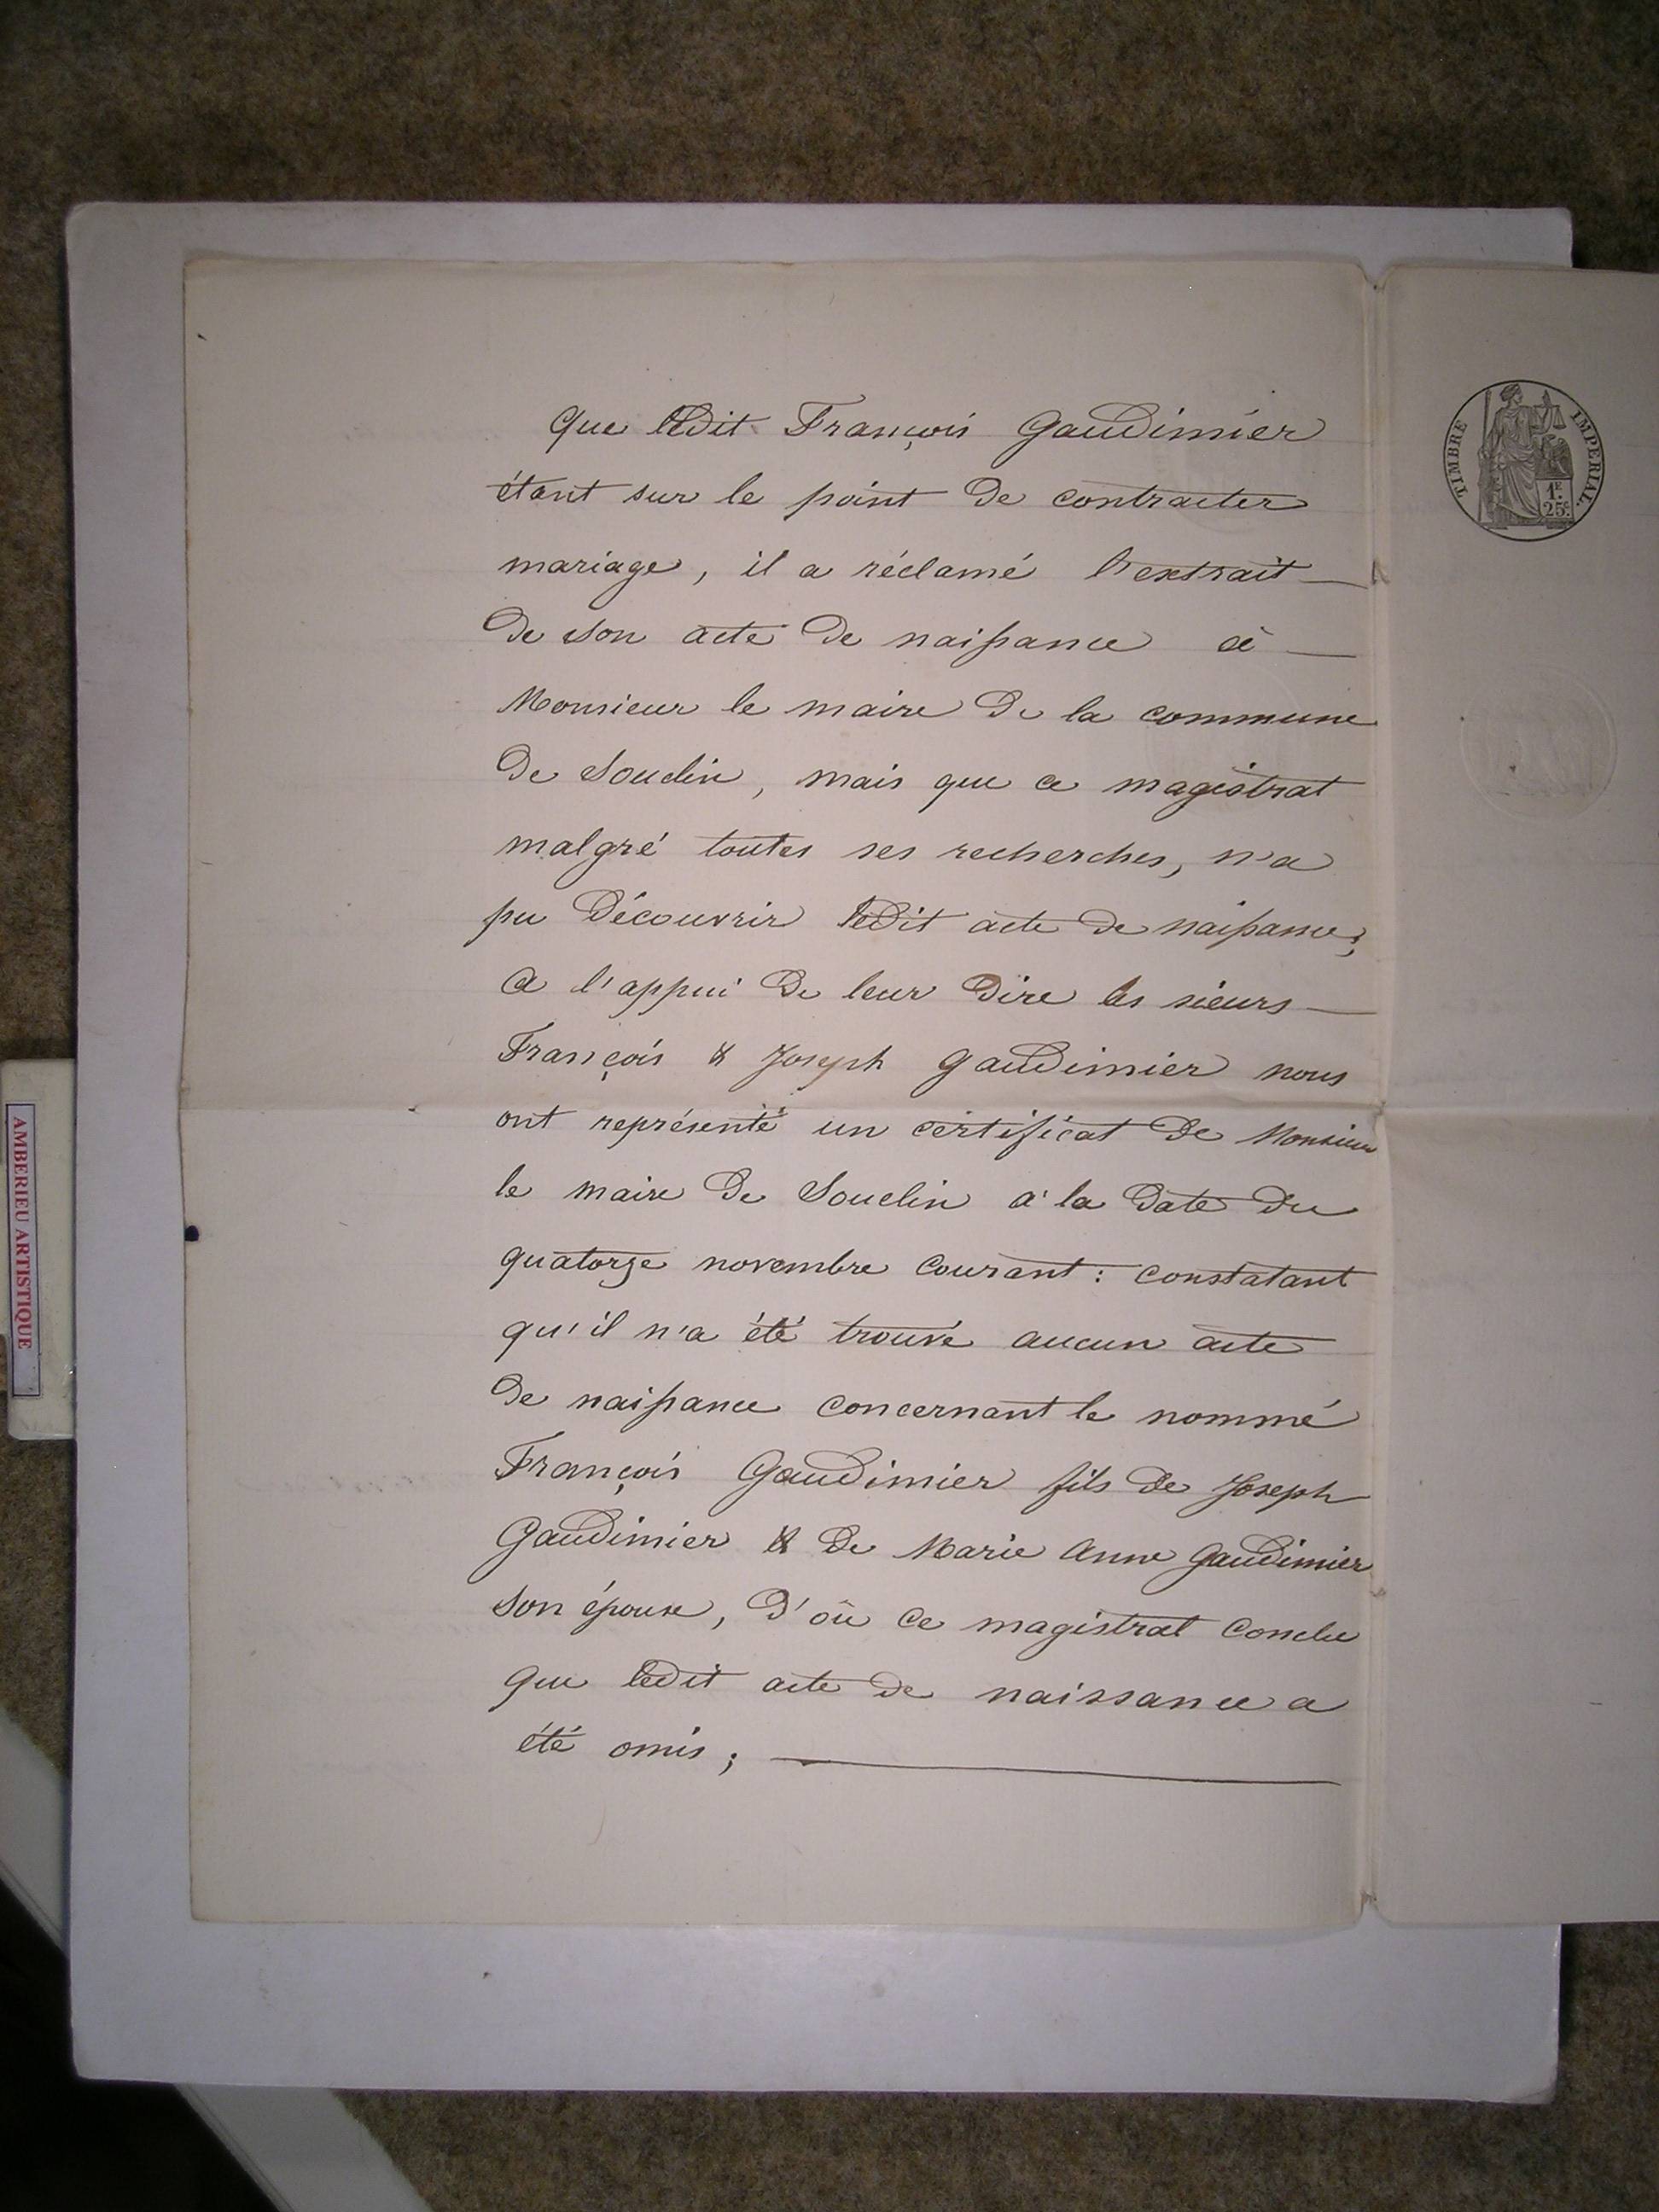 Que ledit François Gaudimier
étant sur le point de contracter
mariage, il a réclamé l'extrait
de son acte de naissance à
Monsieur le maire de la commune
de Souclin, mais que ce magistrat
malgré toutes ses recherches, n'a
pu découvrir ledit acte de naissance;
A l'appui de leur dire les sieurs
François & Joseph Gaudimier nous
ont représenté un certificat de Monsieur
le maire de Souclin à la date du
quatorze novembre courant : constatant
qu'il n'a été trouvé aucun acte
de naissance concernant le nommé
François Gaudimier fils de Joseph
Gaudimier & de Marie Anne Gaudimier
son épouse, d'où ce magistrat conclu
que ledit acte de naissance a
été omis;
TIMBRE IMPERIAL.
1F.
25c.
AMBERIEU ARTISTIQUE